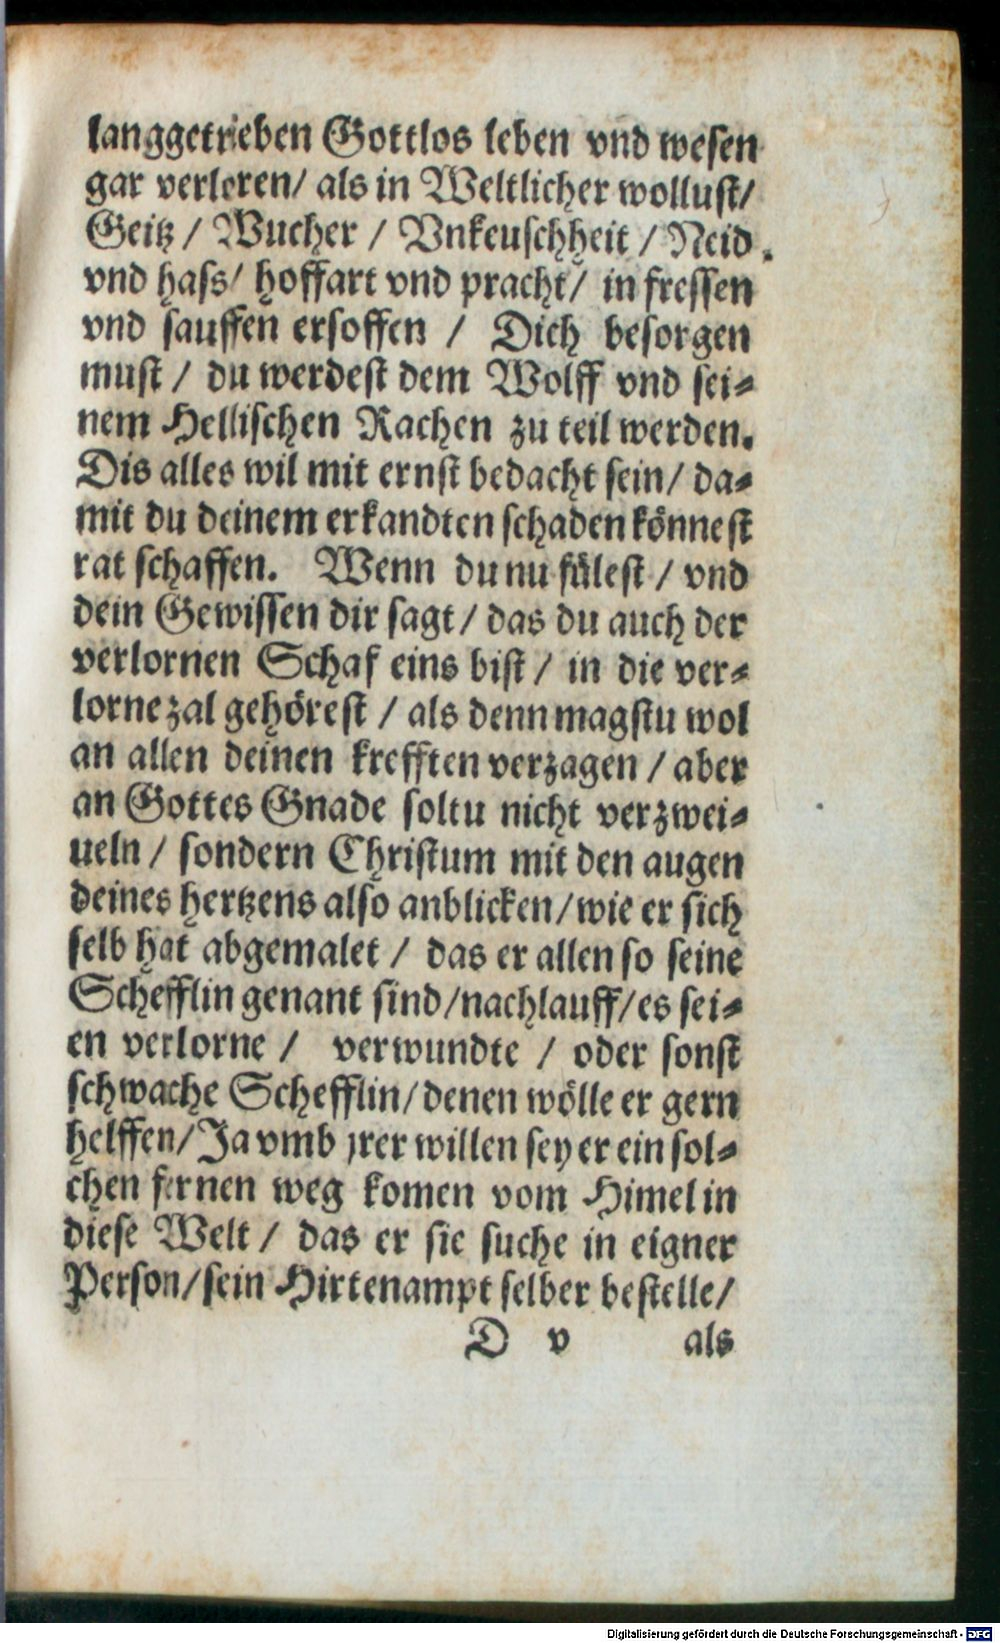 langgetrieben Gottlos leben vnd wesen
gar verloren/ als in Weltlicher wollust/
Geitz / Wucher / Vnkeuschheit / Neid
vnd hass/ hoffart vnd pracht/ in fressen
vnd sauffen ersoffen / Dich besorgen
must / du werdest dem Wolff vnd sei-
nem Hellischen Rachen zu teil werden.
Dis alles wil mit ernst bedacht sein/ da-
mit du deinem erkandten schaden könnest
rat schaffen. Wenn du nu fülest / vnd
dein Gewissen dir sagt / das du auch der
verlornen Schaf eins bist / in die ver-
lorne zal gehörest / als denn magstu wol
an allen deinen krefften verzagen / aber
an Gottes Gnade soltu nicht verzwei-
ueln / sondern Christum mit den augen
deines hertzens also anblicken/ wie er sich
selb hat abgemalet / das er allen so seine
Schefflin genant sind/nachlauff/es sei-
en verlorne / verwundte / oder sonst
schwache Schefflin/ denen wölle er gern
helffen/ Ja vmb jrer willen sey er ein sol-
chen fernen weg komen vom Himel in
diese Welt / das er sie suche in eigner
Person/ sein Hirtenampt selber bestelle/
D v als
Digitalisierung gefördert durch die Deutsche Forschungsgemeinschaft - DFG